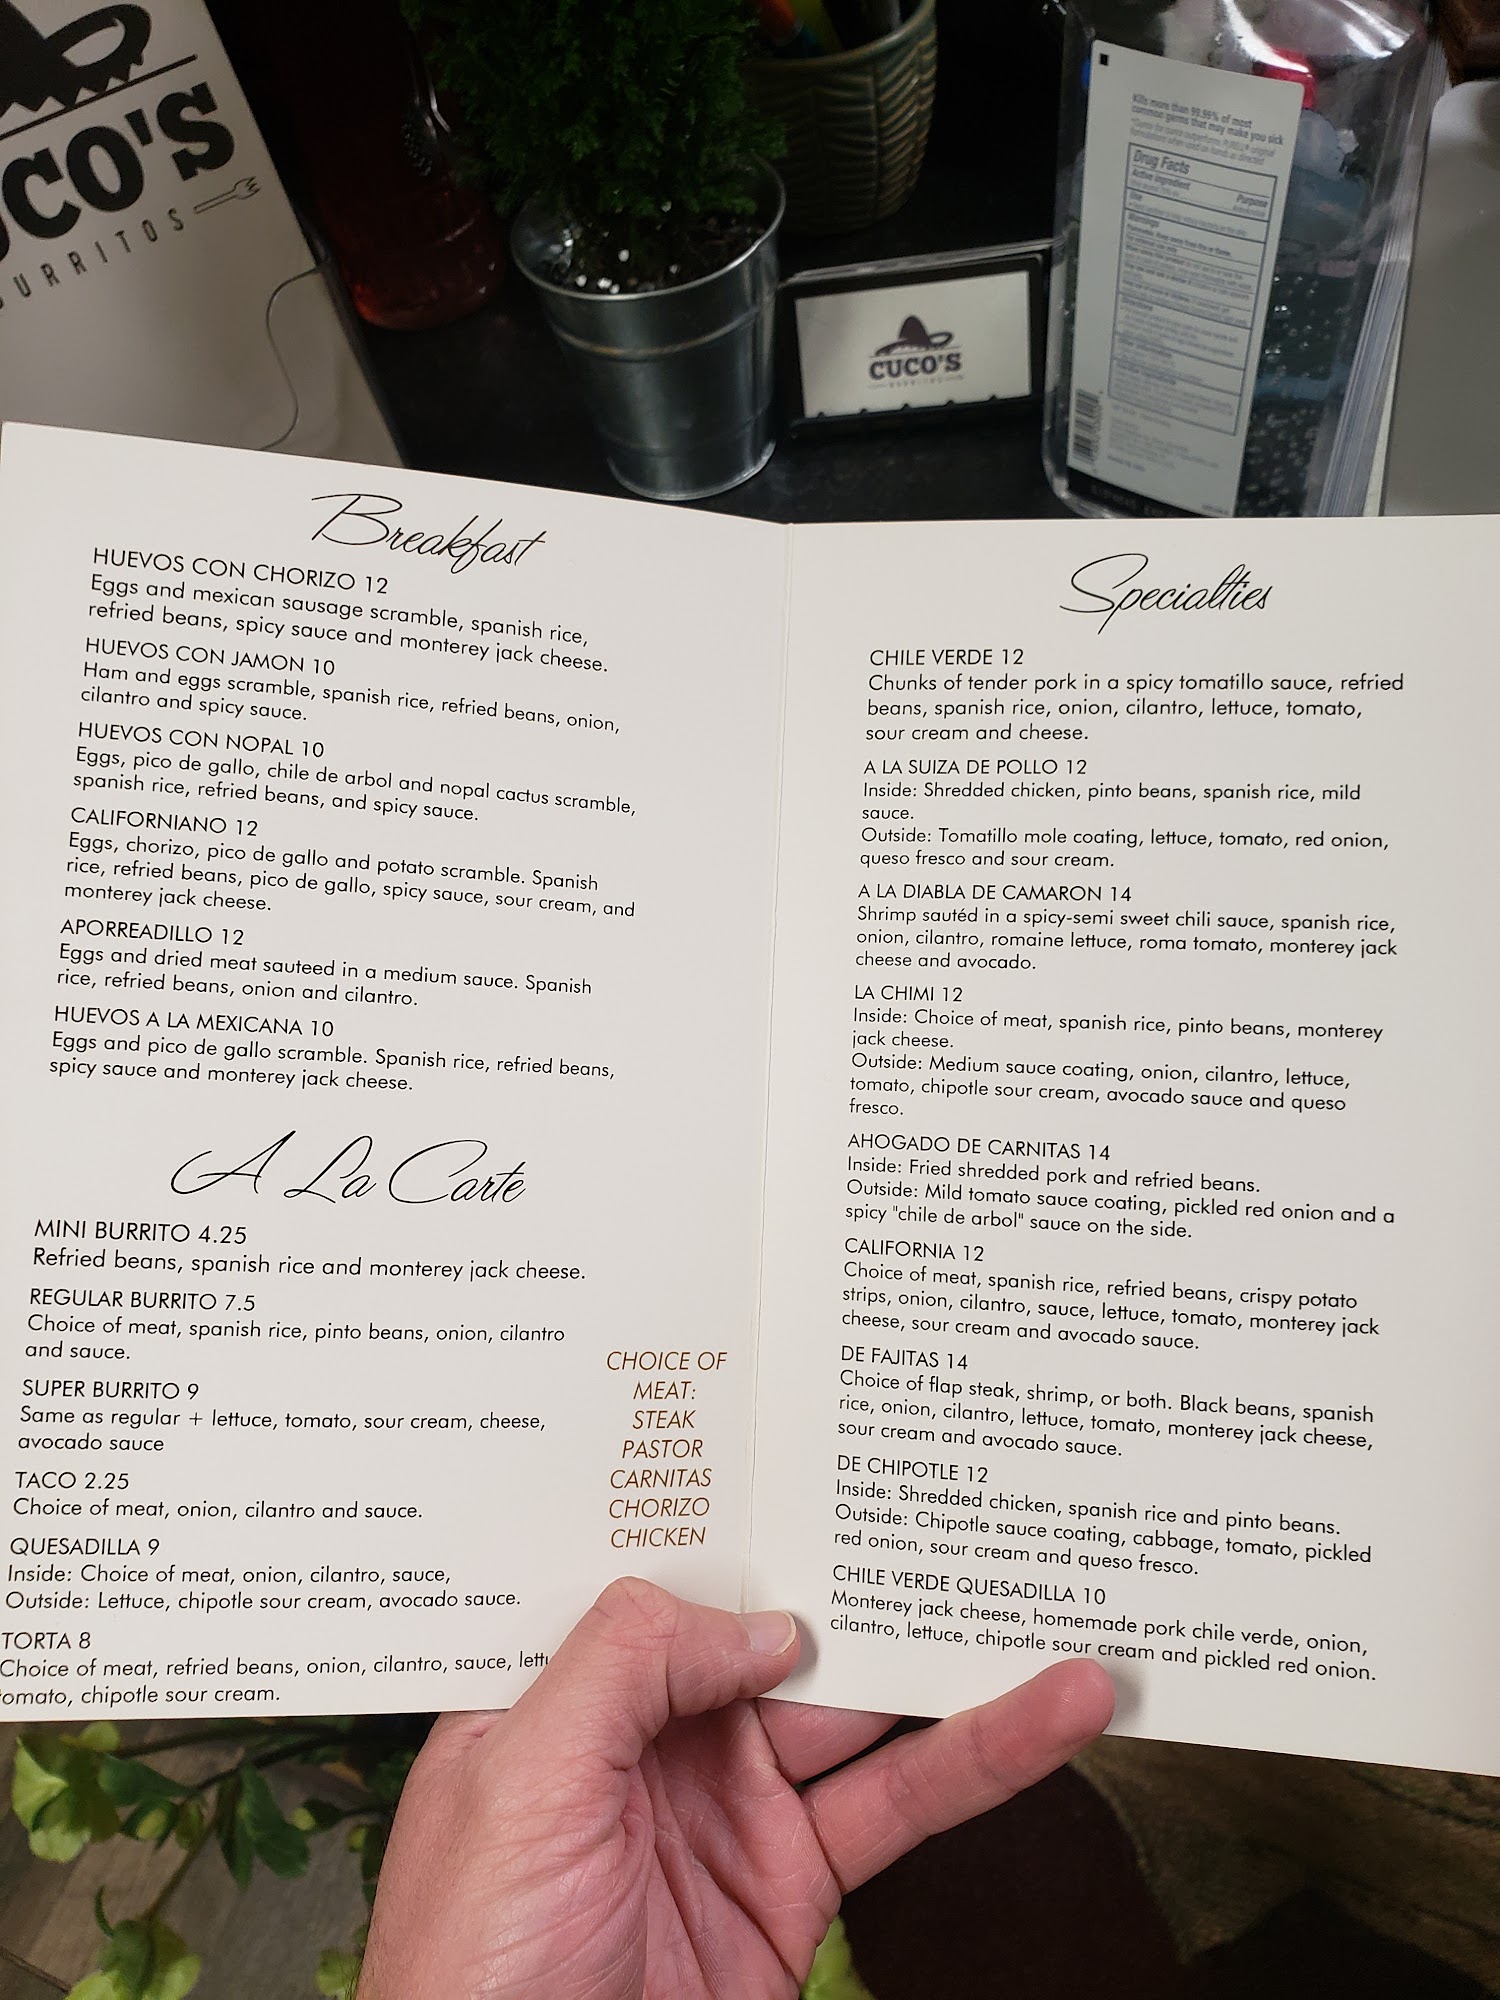 CUCO'S
BURRITOS
Kills more than 99.99% of most
common germs that may make you sick
Drug Facts
Active ingredient
Purpose
Use
Warnings
CUCO'S
BURRITOS
Breakfast
HUEVOS CON CHORIZO 12
Eggs and mexican sausage scramble, spanish rice,
refried beans, spicy sauce and monterey jack cheese.
HUEVOS CON JAMON 10
Ham and eggs scramble, spanish rice, refried beans, onion,
cilantro and spicy sauce.
HUEVOS CON NOPAL 10
Eggs, pico de gallo, chile de arbol and nopal cactus scramble,
spanish rice, refried beans, and spicy sauce.
CALIFORNIANO 12
Eggs, chorizo, pico de gallo and potato scramble. Spanish
rice, refried beans, pico de gallo, spicy sauce, sour cream, and
monterey jack cheese.
APORREADILLO 12
Eggs and dried meat sauteed in a medium sauce. Spanish
rice, refried beans, onion and cilantro.
HUEVOS A LA MEXICANA 10
Eggs and pico de gallo scramble. Spanish rice, refried beans,
spicy sauce and monterey jack cheese.
A La Carte
MINI BURRITO 4.25
Refried beans, spanish rice and monterey jack cheese.
REGULAR BURRITO 7.5
Choice of meat, spanish rice, pinto beans, onion, cilantro
and sauce.
SUPER BURRITO 9
Same as regular + lettuce, tomato, sour cream, cheese,
avocado sauce
TACO 2.25
Choice of meat, onion, cilantro and sauce.
QUESADILLA 9
Inside: Choice of meat, onion, cilantro, sauce,
Outside: Lettuce, chipotle sour cream, avocado sauce.
TORTA 8
Choice of meat, refried beans, onion, cilantro, sauce, lettu
omato, chipotle sour cream.
CHOICE OF
MEAT:
STEAK
PASTOR
CARNITAS
CHORIZO
CHICKEN
Specialties
CHILE VERDE 12
Chunks of tender pork in a spicy tomatillo sauce, refried
beans, spanish rice, onion, cilantro, lettuce, tomato,
sour cream and cheese.
A LA SUIZA DE POLLO 12
Inside: Shredded chicken, pinto beans, spanish rice, mild
sauce.
Outside: Tomatillo mole coating, lettuce, tomato, red onion,
queso fresco and sour cream.
A LA DIABLA DE CAMARON 14
Shrimp sautéd in a spicy-semi sweet chili sauce, spanish rice,
onion, cilantro, romaine lettuce, roma tomato, monterey jack
cheese and avocado.
LA CHIMI 12
Inside: Choice of meat, spanish rice, pinto beans, monterey
jack cheese.
Outside: Medium sauce coating, onion, cilantro, lettuce,
tomato, chipotle sour cream, avocado sauce and queso
fresco.
AHOGADO DE CARNITAS 14
Inside: Fried shredded pork and refried beans.
Outside: Mild tomato sauce coating, pickled red onion and a
spicy "chile de arbol" sauce on the side.
CALIFORNIA 12
Choice of meat, spanish rice, refried beans, crispy potato
strips, onion, cilantro, sauce, lettuce, tomato, monterey jack
cheese, sour cream and avocado sauce.
DE FAJITAS 14
Choice of flap steak, shrimp, or both. Black beans, spanish
rice, onion, cilantro, lettuce, tomato, monterey jack cheese,
sour cream and avocado sauce.
DE CHIPOTLE 12
Inside: Shredded chicken, spanish rice and pinto beans.
Outside: Chipotle sauce coating, cabbage, tomato, pickled
red onion, sour cream and queso fresco.
CHILE VERDE QUESADILLA 10
Monterey jack cheese, homemade pork chile verde, onion,
cilantro, lettuce, chipotle sour cream and pickled red onion.